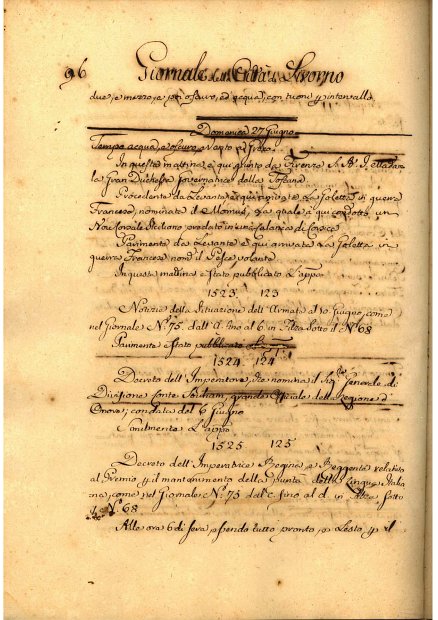 96 Giornale della Città di Livorno
due, e mezzo, e poi oscuro, ed acqua, con tuoni p intervallo
Domenica 27 Giugno
Tempo acqua, e oscuro Vento
In questa mattina è qui giunto da Firenze S. A. I. e la
la Gran Duchessa Governatrice della Toscana.
Procedente da Levante è qui arrivata La Goletta in guerra
Francese, nominata il Momus, La quale a qui condotto un
Navicello Siciliano predato in una Calanca di Corsica
Parimenti da Levante è qui arrivata La Goletta in
guerra Francese nom.ª il Pesce volante
In questa mattina è stato pubblicato L'app.º
1523 123
Notizie della Situazione dell'Armata al 10 Giugno, come
nel Giornale N.º 75. dall'A. fino al 6 in Filza Sotto il N.º 68
Parimente è stato pubblicato
1524 124
Decreto dell'Imperatore, che nomina il Sig.re Generale di
Divisione Conte grande Offiziale della Legione d'
Onore, con data del 6 Giugno
Similmente L'app.º
1525 125
Decreto dell'Imperatrice Regina e Reggente relativo
al Premio p il mantenimento della purità della Lingua Italia
na, come nel Giornale N.º 75 dal c. fino al d. in Filza Sotto
N.º 68
Alle ore 6 di sera essendo tutto pronto, e Lesto p il